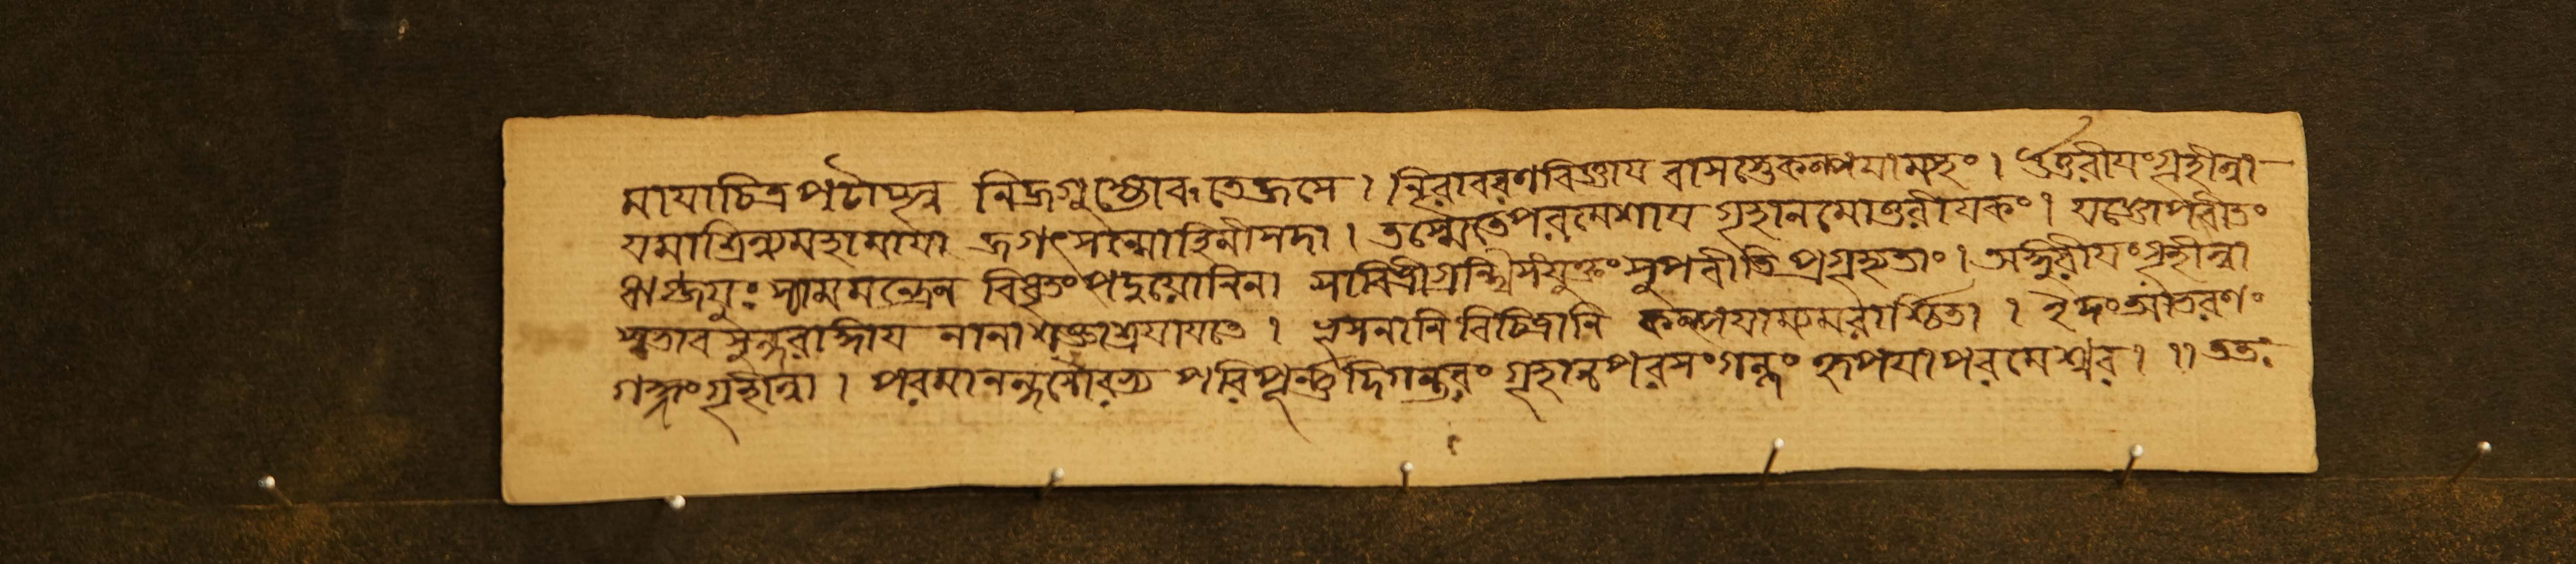 মায়াচিত্রপটাচ্ছন্ন নিজগুহ্যোরুতেজসে । নিরাবরণবিজ্ঞায় বাসস্তেকল্পয়াম্যহং । উত্তরীয়ংগৃহীত্বা
যমাশ্রিত্যমহামায়া জগৎসম্মোহিনীসদা । তস্মৈতেপরমেশায় গৃহানমোত্তরীয়কং । যজ্ঞোপবীতং
বিধৃতং পদ্মযোনিনা সাবিত্রীগ্রন্থিসংযুক্তং প্রগৃহ্যতাং । গৃহীত্বা
স্বভাবসুন্দরাঙ্গায় নানাশক্ত্যাশ্রয়ায়তে । ভূষনানি বিচিত্রানি কল্পয়াম্যমরার্চ্চিতা । ইদংআভরণং
গন্ধংগৃহীত্বা । পরমানন্দসৌরভ্য পরিপূর্ণ্ণদিগন্তরং গৃহানপরমংগন্ধং কৃপয়াপরমেশ্বর । ॥ ততঃ